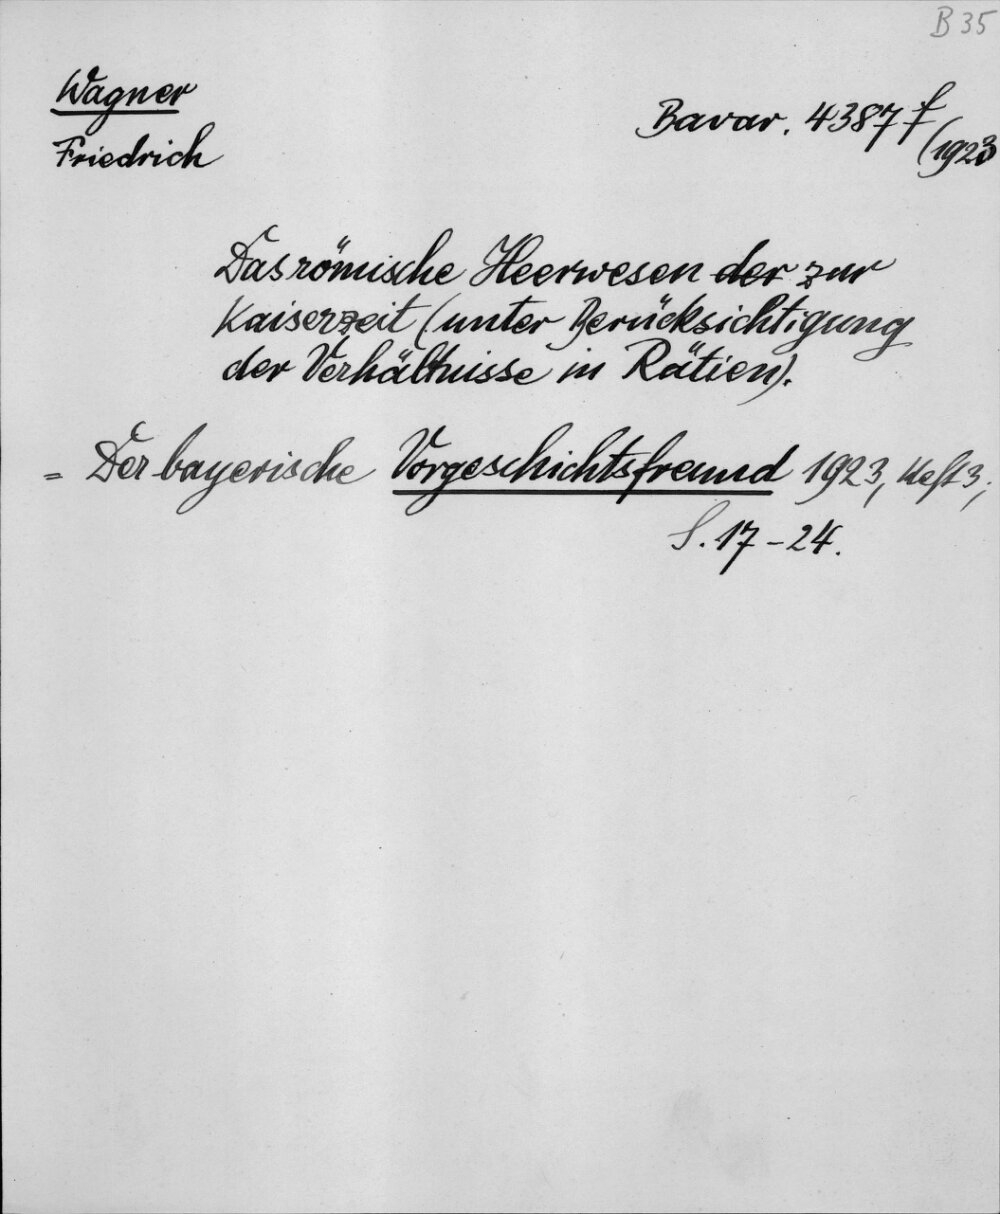 B 35
Wagner
Friedrich
Bavar. 4387 f
(1923
Das römische Heerwesen der zur
Kaiserzeit (unter Berücksichtigung
der Verhältnisse in Rätien).
= Der bayerische Vorgeschichtsfreund 1923, Heft 3,
S. 17-24.